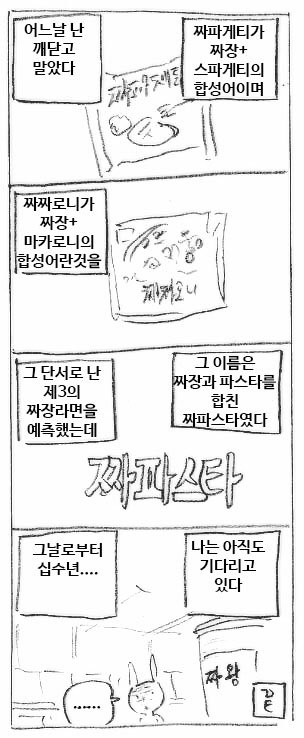 어느날 난
깨닫고
말았다
짜파게티가
짜장+
스파게티의
합성어이며
짜짜로니가
짜장+
마카로니의
합성어란것을
짜짜로니
그 단서로 난
제3의
짜장라면을
예측했는데
그 이름은
짜장과 파스타를
합친
짜파스타였다
짜파스타
그날로부터
십수년....
나는 아직도
기다리고
있다
짜왕
......
끝